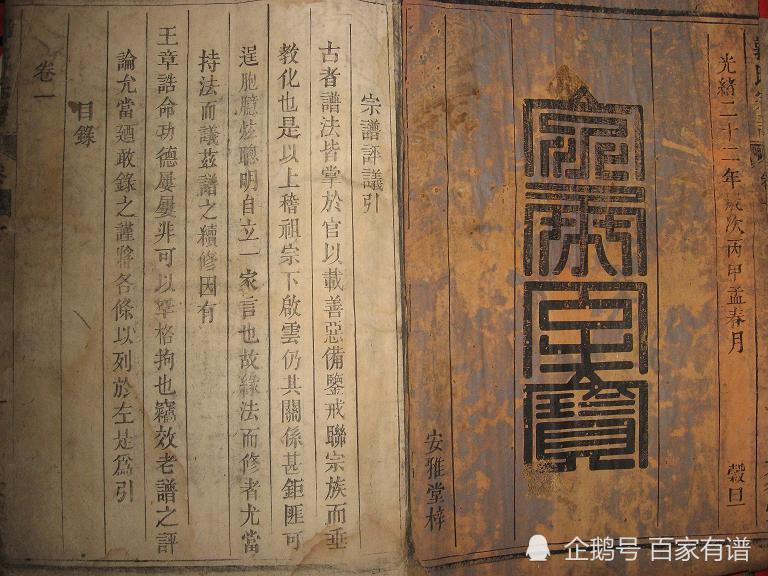 光緒二十二年歲次丙申孟春月 穀旦
安雅堂梓
宗譜評議引
古者譜法皆掌於官以載善惡備鑒戒聯宗族而垂
教化也是以上稽祖宗下啟雲仍其關係甚鉅匪可
逞胸臆炫聰明自立一家言也故緣法而修者尤當
持法而議茲譜之續修因有
王章誥命功德屢屢非可以罕格拘也竊效老譜之評
論允當廼敢錄之謹將各條以列於左是為引
目錄
卷一
企鹅号 百家有谱